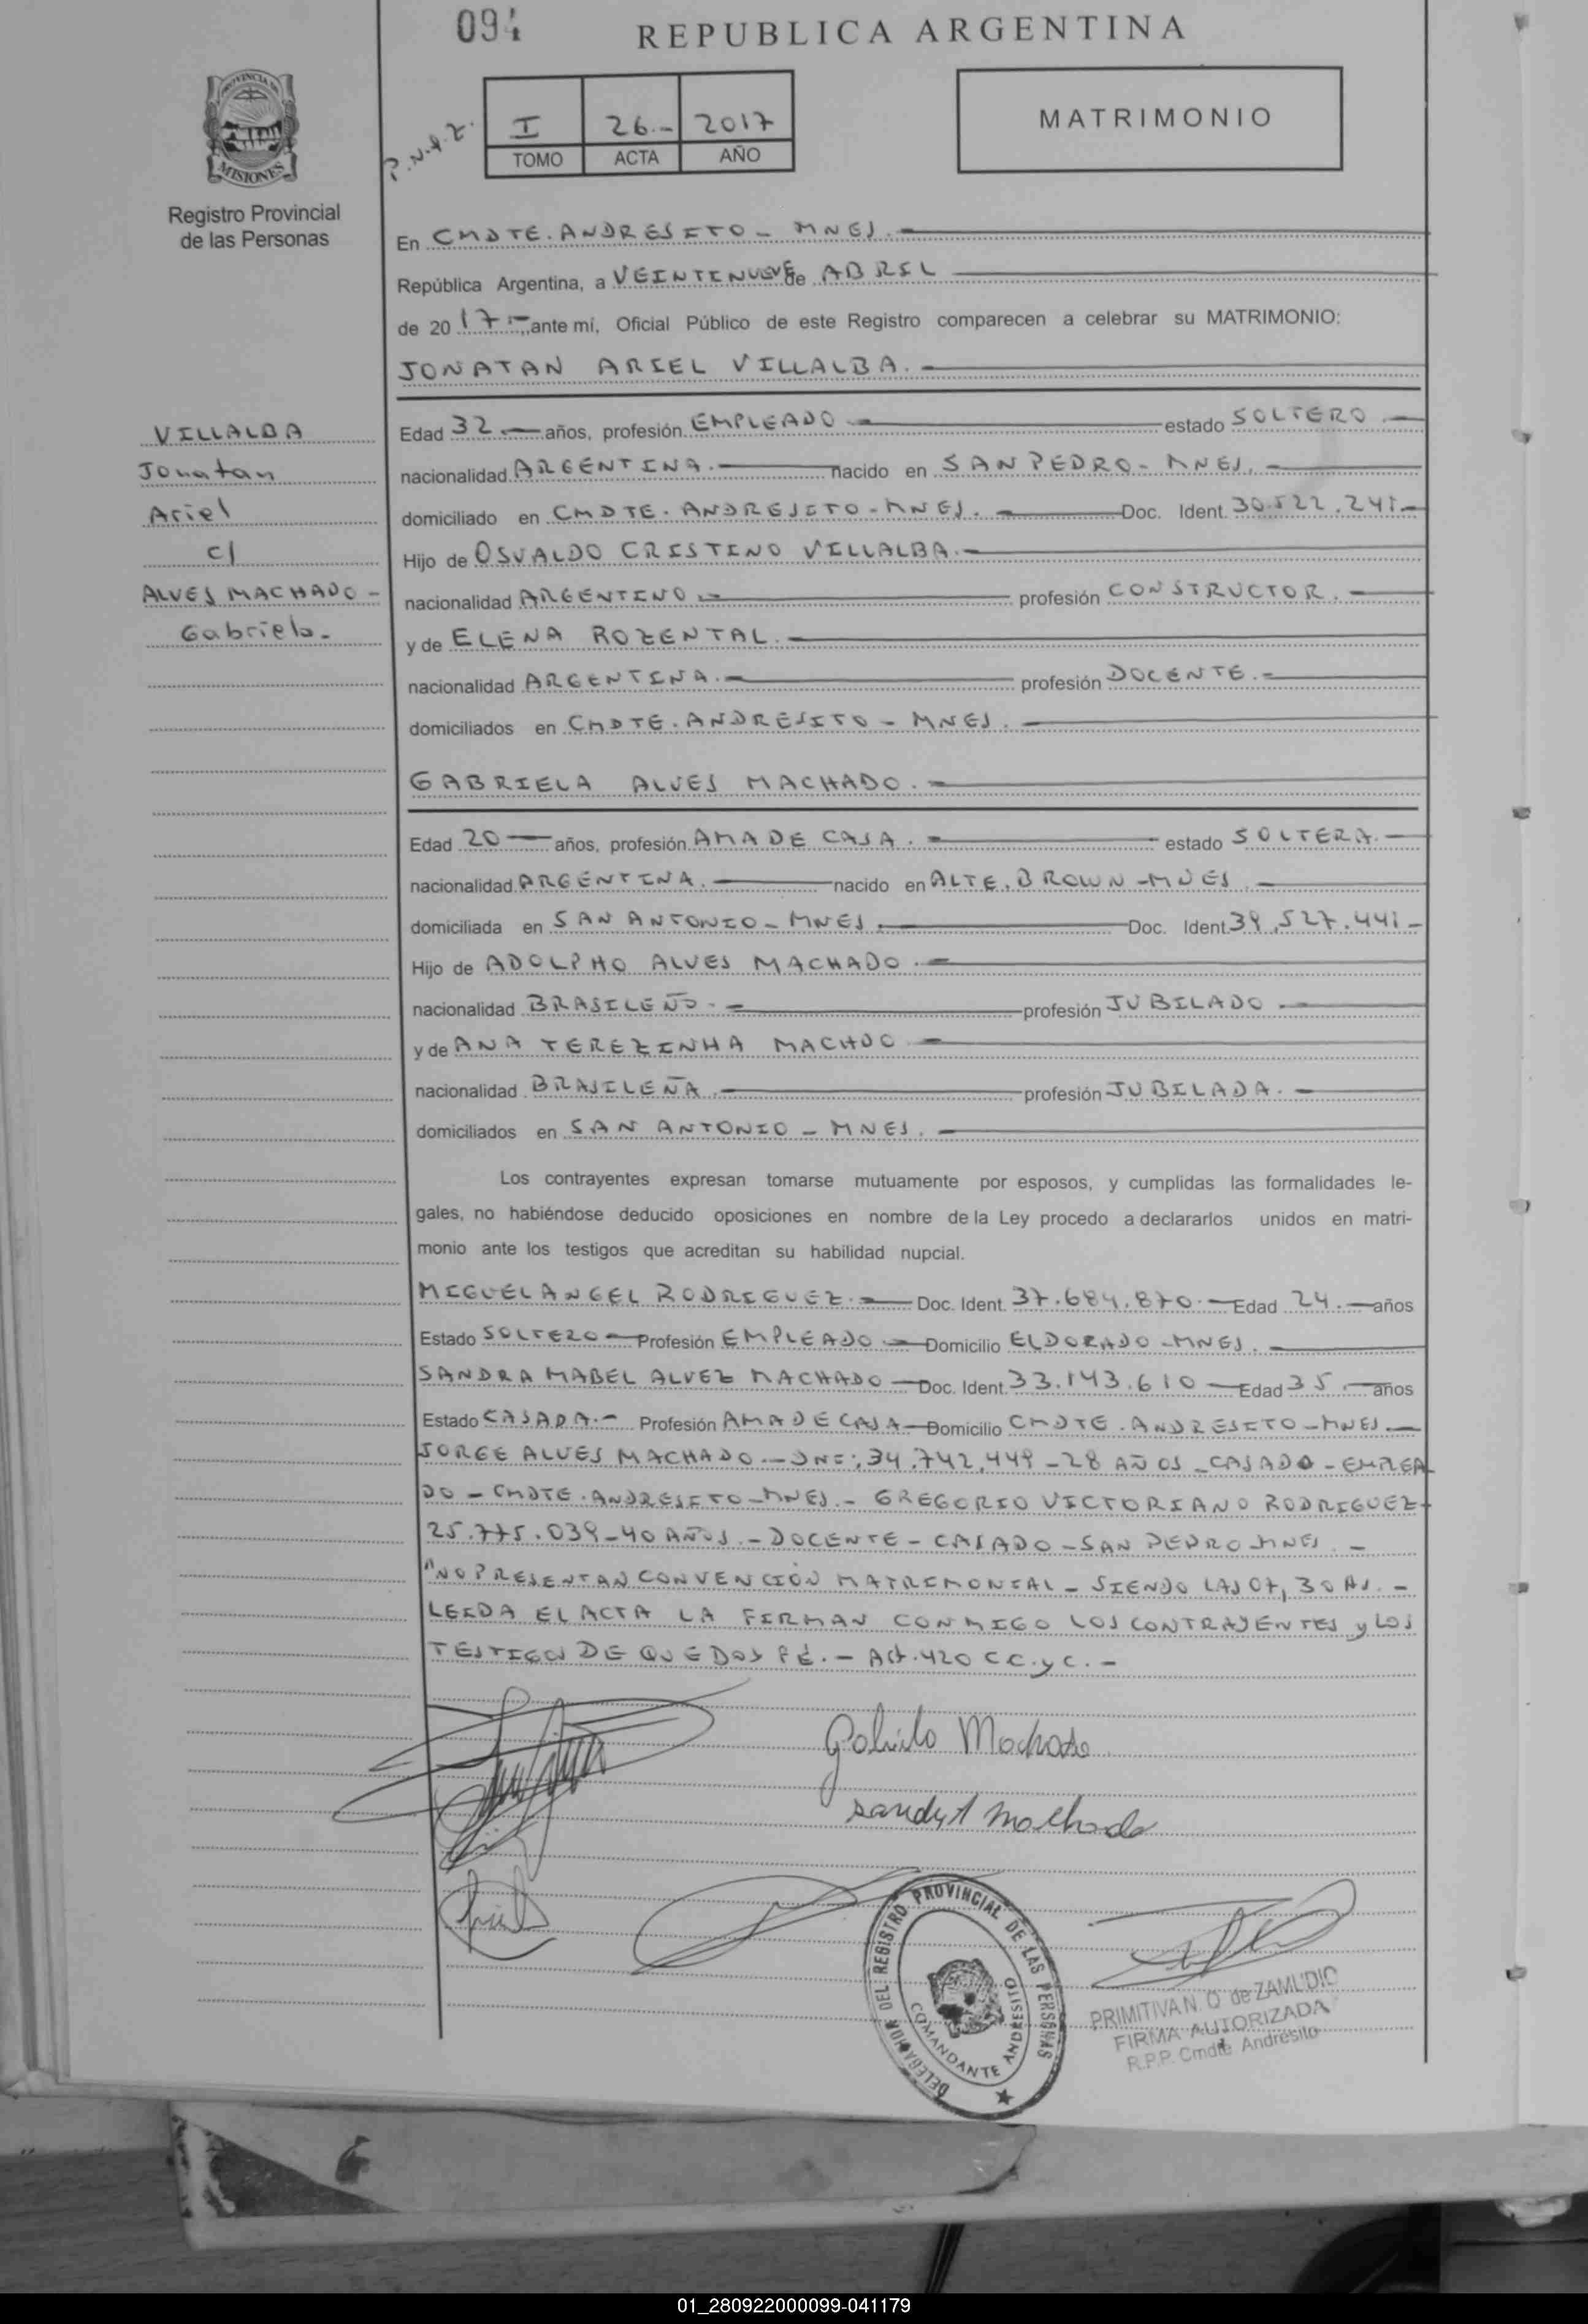 REPUBLICA ARGENTINA
PROVINCIA
MISIONES
Registro Provincial
de las Personas
P.N.q.Z.
I 26.- 2017
TOMO ACTA AÑO
MATRIMONIO
En CMDTE. ANDRESITO - MNES.-
República Argentina, a VEINTINUEVE de ABRIL
de 20 17.- ante mí, Oficial Público de este Registro comparecen a celebrar su MATRIMONIO:
JONATAN ARIEL VILLALBA.-
VILLALBA
Jonatan
Ariel
c/
ALVES MACHADO-
Gabriela.
Edad 32 años, profesión EMPLEADO estado SOLTERO
nacionalidad ARGENTINA. nacido en SAN PEDRO - MNES.
domiciliado en CMDTE. ANDRESITO - MNES. Doc. Ident. 30.522.241.-
Hijo de OSVALDO CRISTINO VILLALBA.-
nacionalidad ARGENTINO profesión CONSTRUCTOR.
y de ELENA ROZENTAL.
nacionalidad ARGENTINA.- profesión DOCENTE.-
domiciliados en CMDTE. ANDRESITO - MNES.
GABRIELA ALVES MACHADO.-
Edad 20 años, profesión AMA DE CASA. estado SOLTERA.
nacionalidad ARGENTINA. nacido en ALTE. BROWN - MNES.
domiciliada en SAN ANTONIO - MNES. Doc. Ident. 39.527.441-
Hijo de ADOLPHO ALVES MACHADO.-
nacionalidad BRASILEÑO.- profesión JUBILADO
y de ANA TEREZINHA MACHDO
nacionalidad BRASILEÑA. profesión JUBILADA.-
domiciliados en SAN ANTONIO - MNES.
Los contrayentes expresan tomarse mutuamente por esposos, y cumplidas las formalidades le-
gales, no habiéndose deducido oposiciones en nombre de la Ley procedo a declararlos unidos en matri-
monio ante los testigos que acreditan su habilidad nupcial.
MIGUEL ANGEL RODRIGUEZ.- Doc. Ident. 37.684.870.- Edad 24.- años
Estado SOLTERO Profesión EMPLEADO Domicilio ELDORADO - MNES.
SANDRA MABEL ALVEZ MACHADO Doc. Ident. 33.143.610 Edad 35.- años
Estado CASADA.- Profesión AMA DE CASA Domicilio CMDTE. ANDRESITO - MNES.-
JORGE ALVES MACHADO - DNI: 34.742.449 - 28 AÑOS - CASADO - EMPLEA
DO - CMDTE. ANDRESITO - MNES. - GREGORIO VICTORIANO RODRIGUEZ-
25.775.039 - 40 AÑOS. - DOCENTE - CASADO - SAN PEDRO MNES. -
"NO PRESENTAN CONVENCIÓN MATRIMONIAL - SIENDO LAS 07,30 HS. -
LEIDA EL ACTA LA FIRMAN CONMIGO LOS CONTRAYENTES y LOS
TESTIGOS DE QUE DOY FÉ. - Art. 420 C C. y C. -
Gabriela Machado
Sandra Machado
DELEGACION DEL REGISTRO PROVINCIAL DE LAS PERSONAS
COMANDANTE ANDRESITO
PRIMITIVA N. O. de ZAMUDIO
FIRMA AUTORIZADA
R.P.P. Cmdte Andresito
01_280922000099-041179